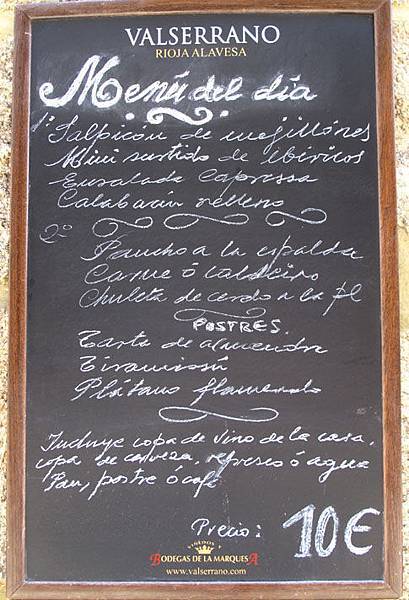 VALSERRANO
RIOJA ALAVESA
Menú del día
1º Salpicón de mejillónes
Mini surtido de ibéricos
Ensalada Capressa
Calabacín relleno
2º
Pancho a la espalda
Carne ó caldeiro
Chuleta de cerdo a la pl
POSTRES.
Tarta de almendra
Tiramissú
Plátano flameado
Incluye copa de vino de la casa,
copa de cerveza, refresco ó agua
Pan, postre ó café
Precio: 10€
VIÑEDOS Y
BODEGAS DE LA MARQUESA
www.valserrano.com